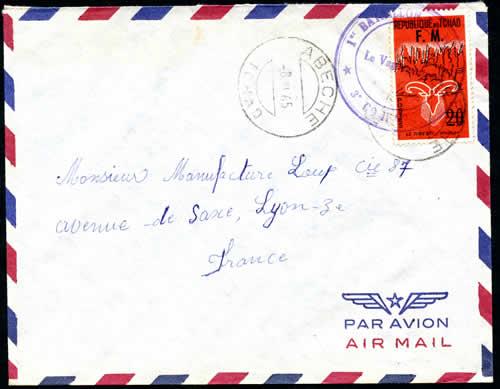 1er BATAILLON
Le Vag
3e
REPUBLIQUE DU TCHAD
F. M.
20
ABECHE
-8 65
TCHAD
Monsieur Manufacture Loup Cie 87
avenue de Saxe, Lyon-3e
France
PAR AVION
AIR MAIL